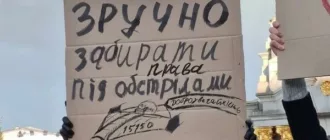 ЗРУЧНО
забирати
права
під обстрілами
15150